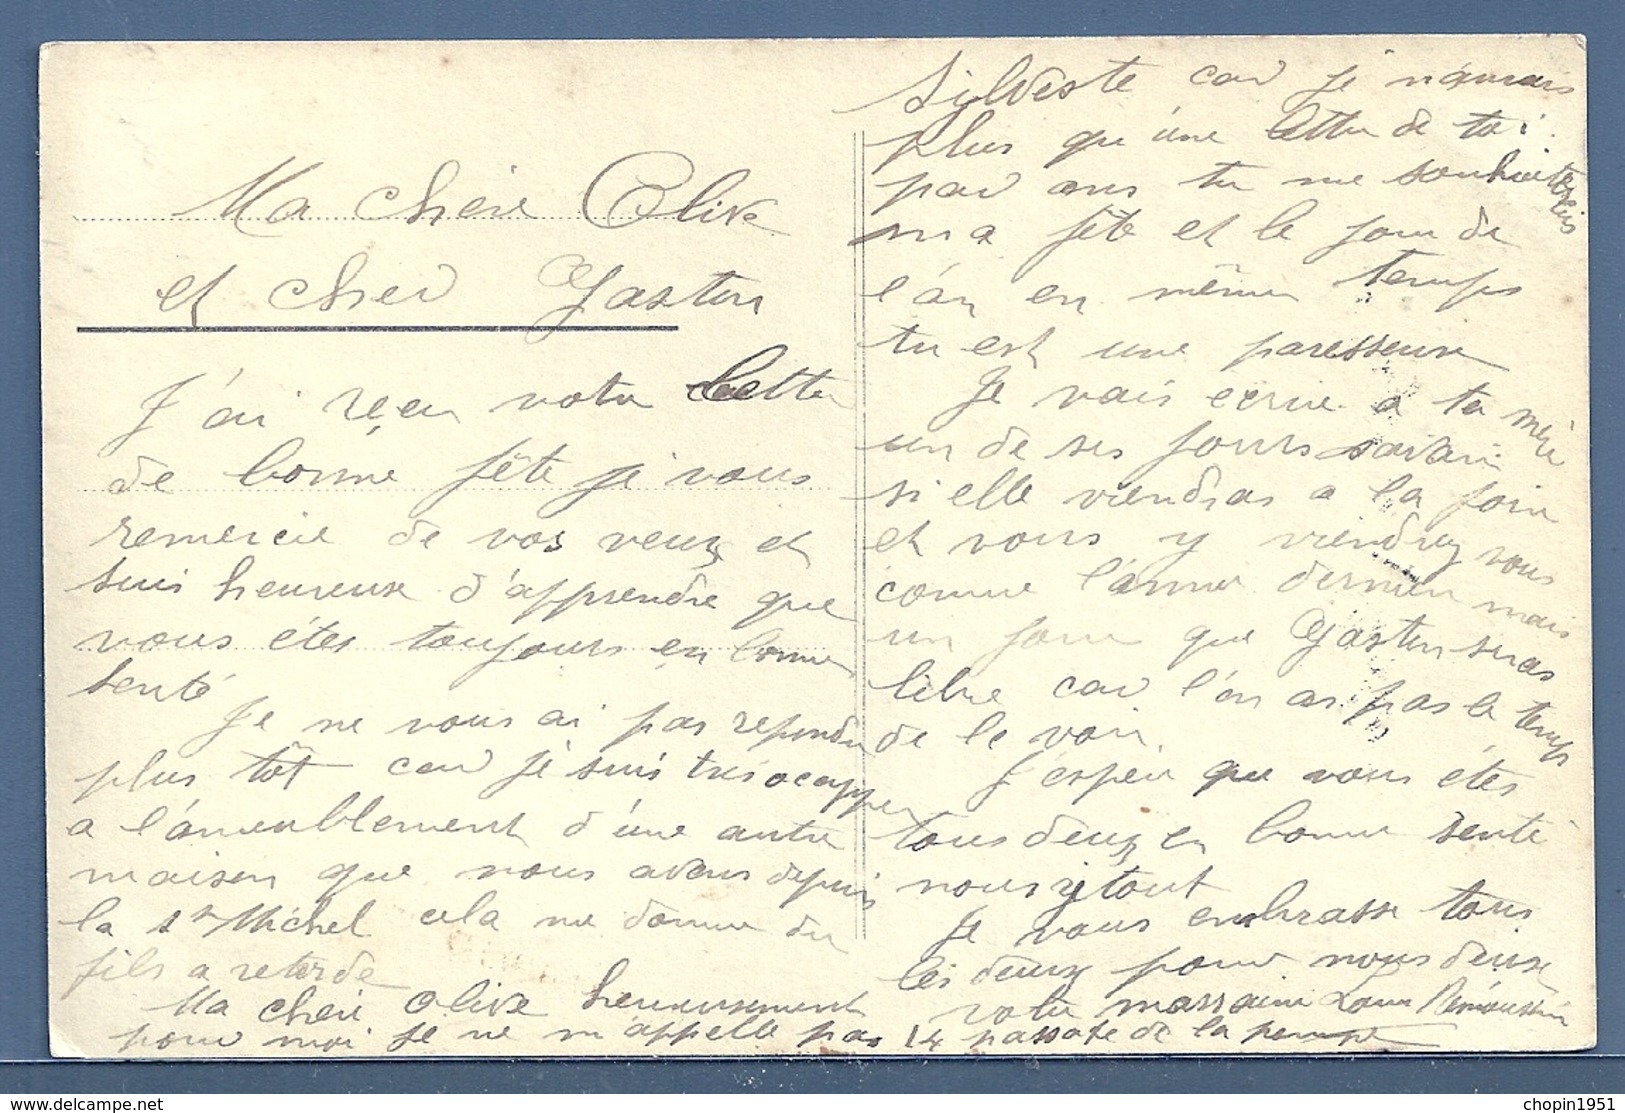 Ma chère Olive
et cher Gaston
J'ai reçu votre lettre
de bonne fête je vous
remercie de vos veux et
suis heureuse d'apprendre que
vous êtes toujours en bonne
senté
Je ne vous ai pas repondu
plus tôt car je suis tres ocapper
a l'ameublement d'une autre
maison que nous avons depuis
la St Michel cela me donne du
fils a retorde
Ma chèri Olive heureusement
pour moi je ne m'appelle pas
Sylveste car je n'aurais
plus qu'une lettre de toi
par ans tu me souhaiterais
ma fête et le jour de
l'an en même temps
tu est une paresseuse
Je vais ecrire a ta mère
un de ses jours savoir
si elle viendras a la foire
et vous y viendrez vous
comme l'année dernier mais
un jour que Gaston seras
libre car l'on as pas le temps
de le voir
J'espère que vous êtes
tous deux en bonne senté
nous y tout
Je vous embrasse tous
les deux pour nous deux
votre marraine
14 de la
chopin1951